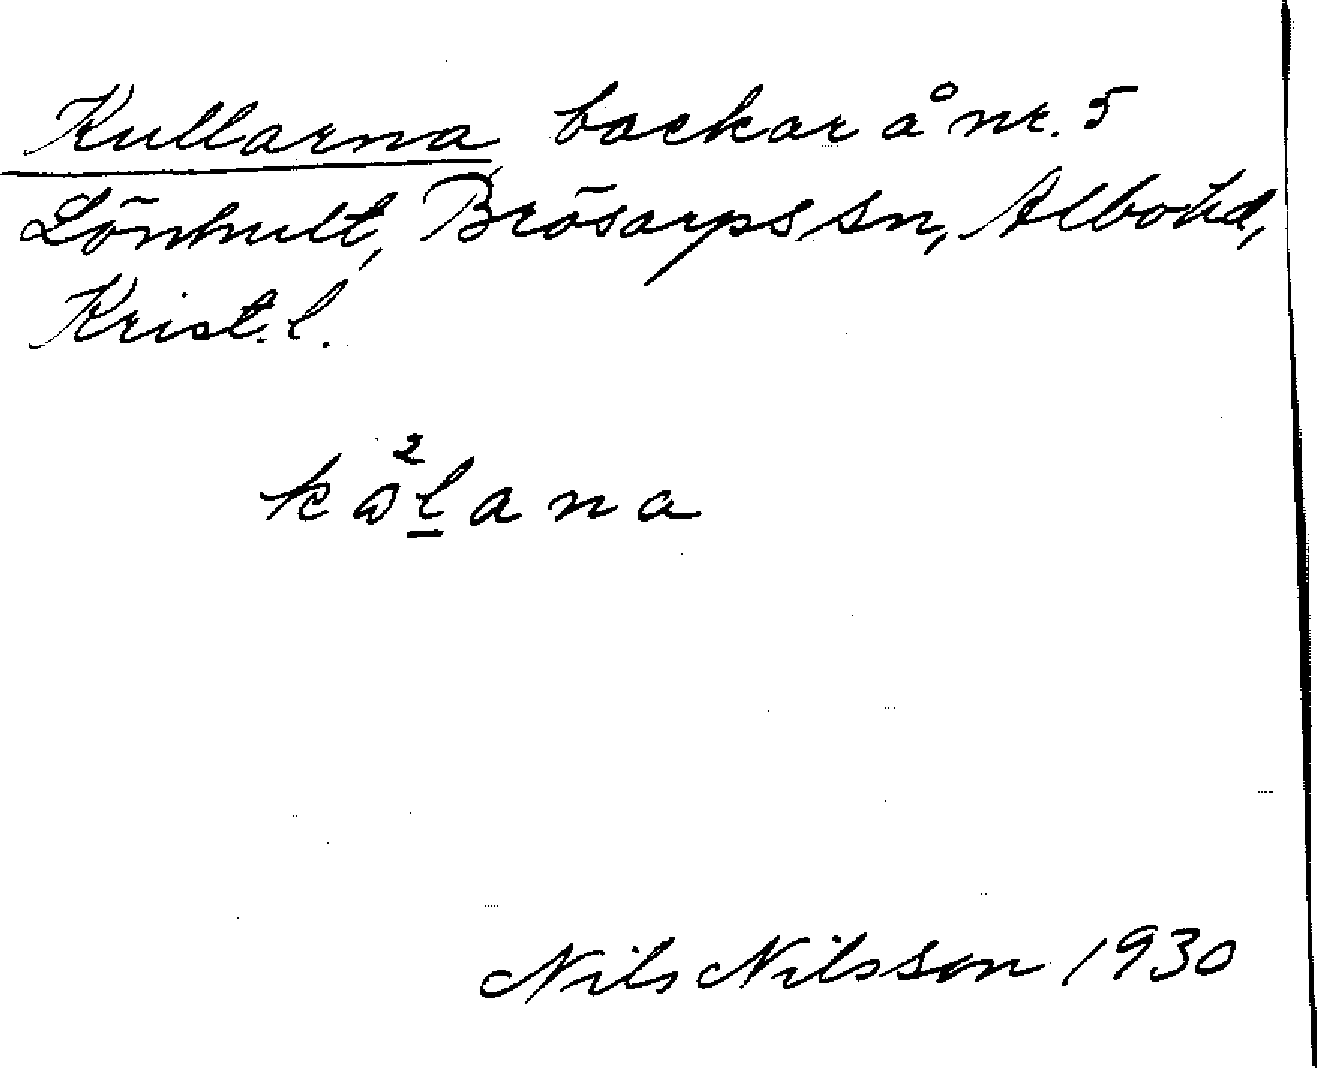 Kullarna backar å nr. 5
Lönhult, Brösarps sn, Albo hd,
Krist. l.
2
kωl̲ana
Nils Nilsson 1930